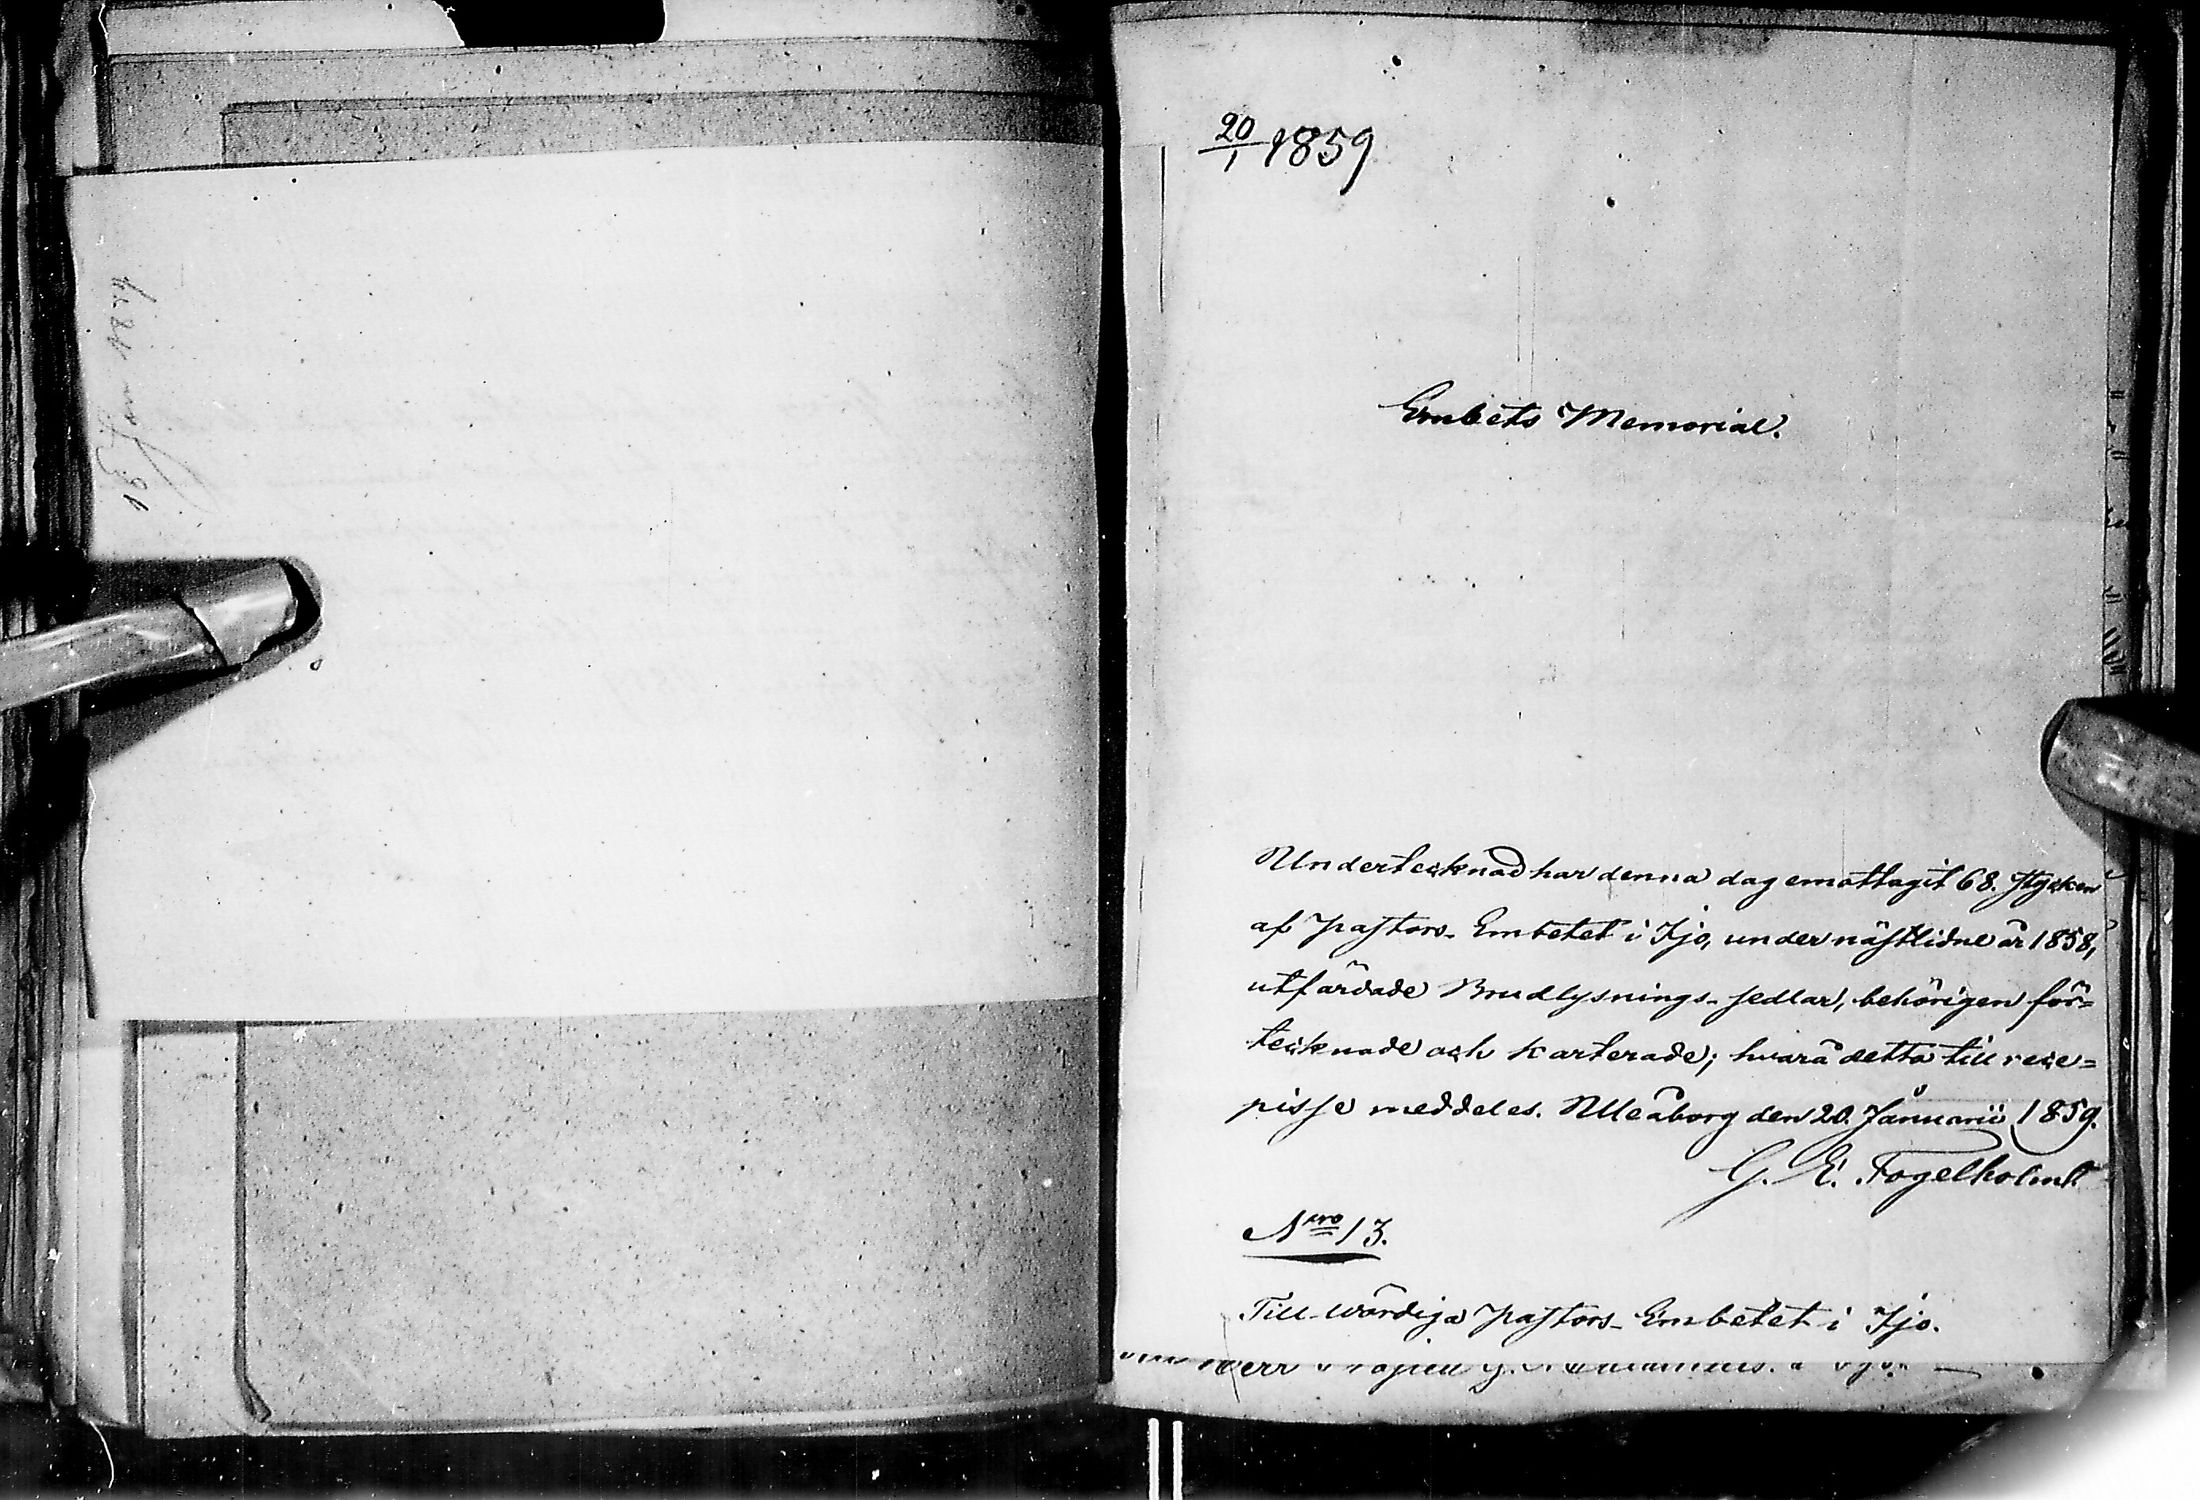 20/1 1859
Embets Memorial.
Undertecknad har denna dag emottagit 68. stycken
af Pastors-Embetet i Ijo, under nästlidne år 1858,
utfärdade Brudlysnings-sedlar, behörigen för=
tecknade och karterade; hvarå detta till rece=
pisse meddeles. Uleåborg den 20. Januarii 1859.
G. E. Fogelholm
Nro 13.
Till wördiga Pastors-Embetet i Ijo.